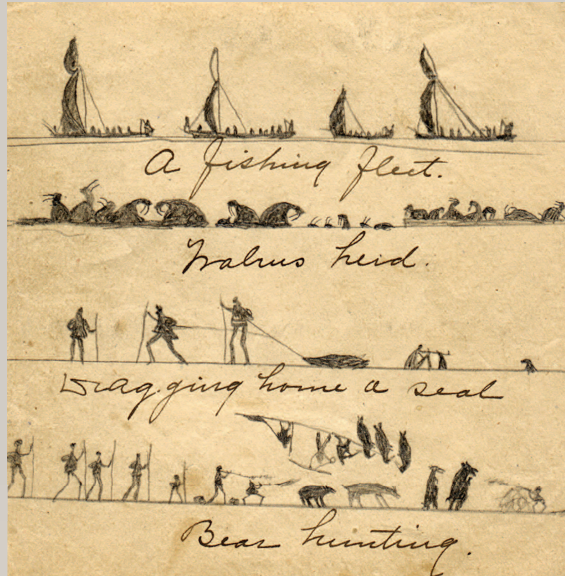 A fishing fleet.
Walrus herd.
Dragging home a seal
Bear hunting.